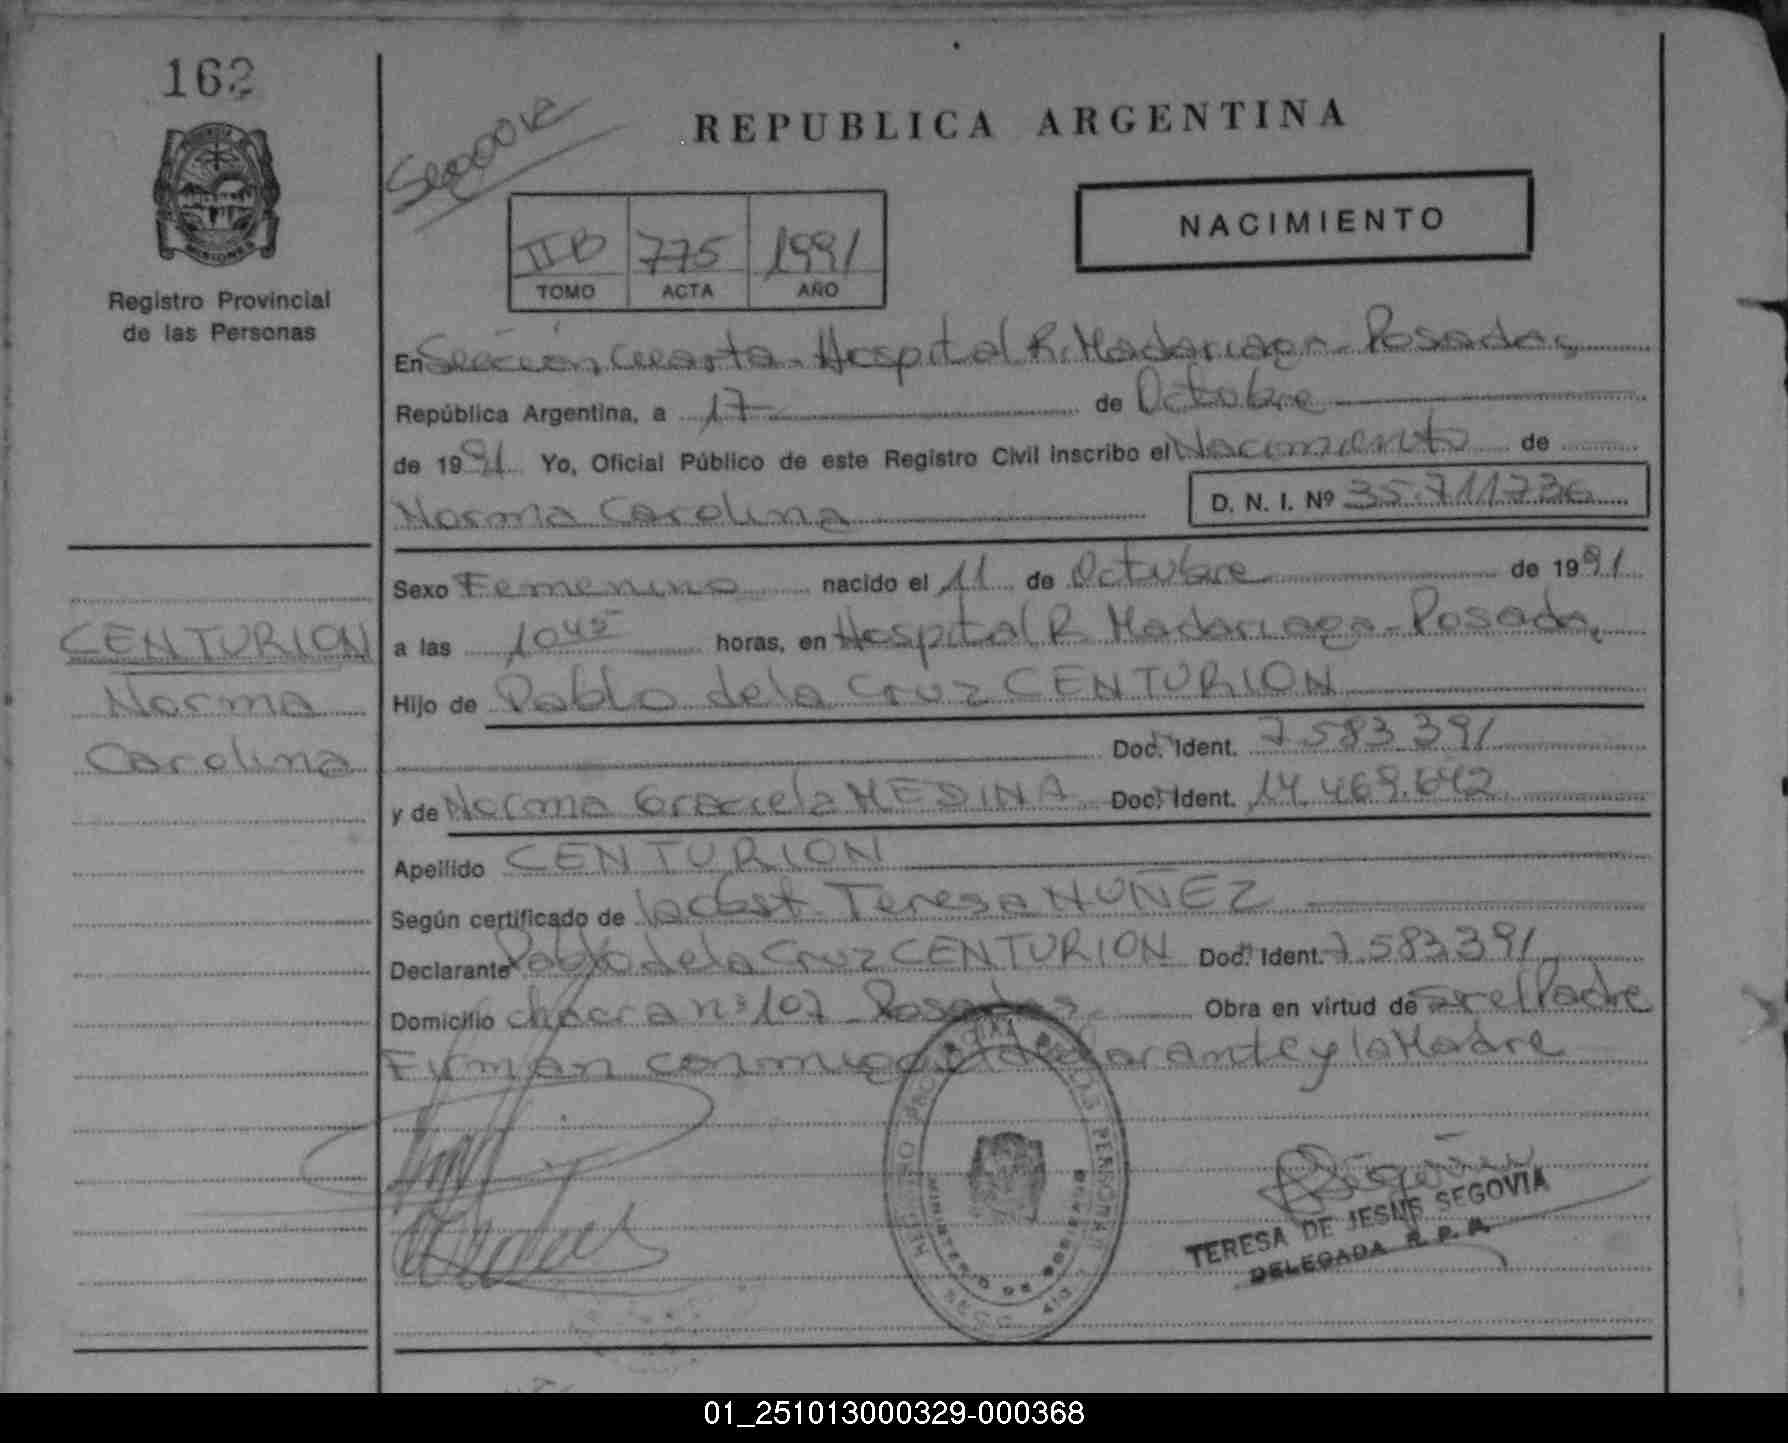 162
REPUBLICA ARGENTINA
NACIMIENTO
IIB 775 1991
TOMO ACTA AÑO
Registro Provincial
de las Personas
En Sección Cuarta - Hospital R. Madariaga - Posadas
República Argentina, a 17 de Octubre
de 1991 Yo, Oficial Público de este Registro Civil inscribo el Nacimiento de
Norma Carolina D. N. I. Nº 35.711736
Sexo Femenino nacido el 11 de Octubre de 1991
a las 10 45 horas, en Hospital R. Madariaga - Posadas
Hijo de Pablo de la Cruz CENTURION
Doc. Ident. 7.583.391
y de Norma Graciela MEDINA Doc. Ident. 14.469.642
Apellido CENTURION
Según certificado de la obst. Teresa NUÑEZ
Declarante Pablo de la Cruz CENTURION Doc. Ident. 7.583.391
Domicilio chacra nº 107 - Posadas Obra en virtud de ser el Padre
Firman conmigo declarante y la Madre
CENTURION
Norma
Carolina
MINISTERIO DE GOBIERNO
TERESA DE JESUS SEGOVIA
DELEGADA R. P. P.
01_251013000329-000368